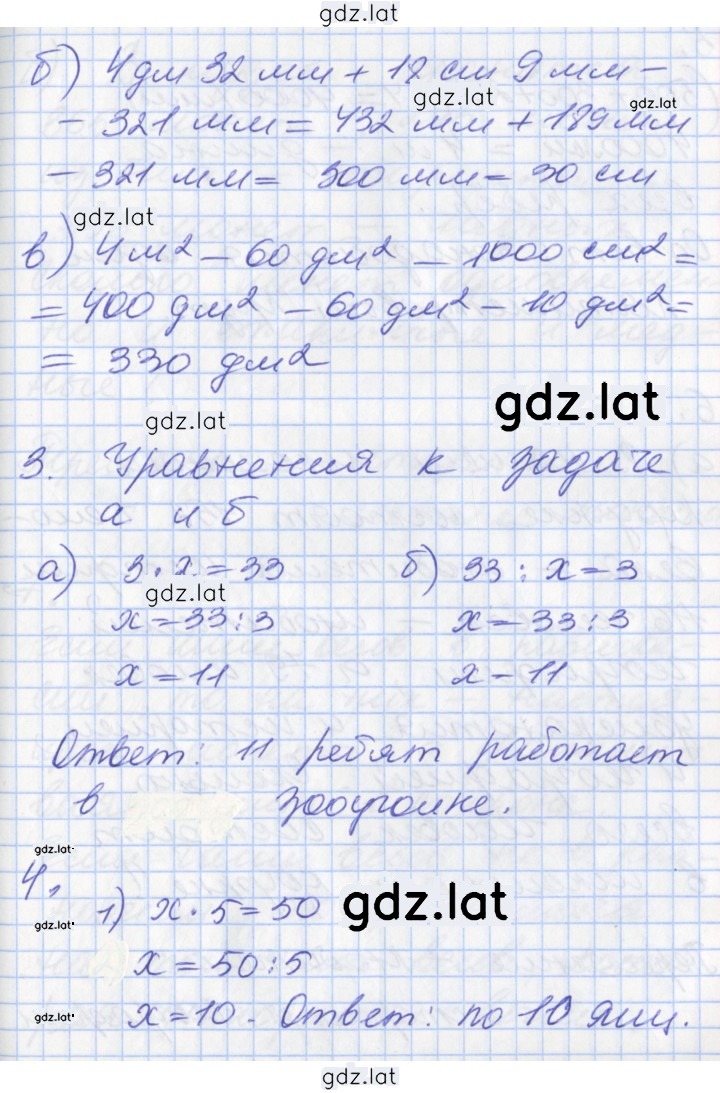 gdz.lat
б) 4 дм 32 мм + 18 см 9 мм –
gdz.lat
gdz.lat
– 321 мм = 432 мм + 189 мм
– 321 мм = 300 мм = 30 см
gdz.lat
в) 4 м² – 60 дм² – 1000 см² =
= 400 дм² – 60 дм² – 10 дм² =
= 330 дм²
gdz.lat
gdz.lat
3. Уравнения к задаче
а и б
а) 3 · x = 33 б) 33 : x = 3
gdz.lat
x = 33 : 3 x = 33 : 3
x = 11 x = 11
Ответ: 11 ребят работает
в зооуголке.
gdz.lat
4.
gdz.lat
1) x · 5 = 50
gdz.lat
x = 50 : 5
gdz.lat
x = 10. Ответ: по 10 яиц.
gdz.lat